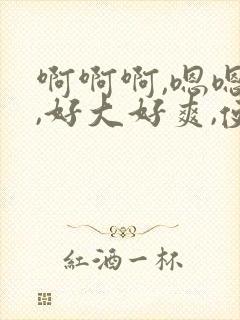 啊啊啊,嗯嗯
,好大好爽,
紅酒一杯